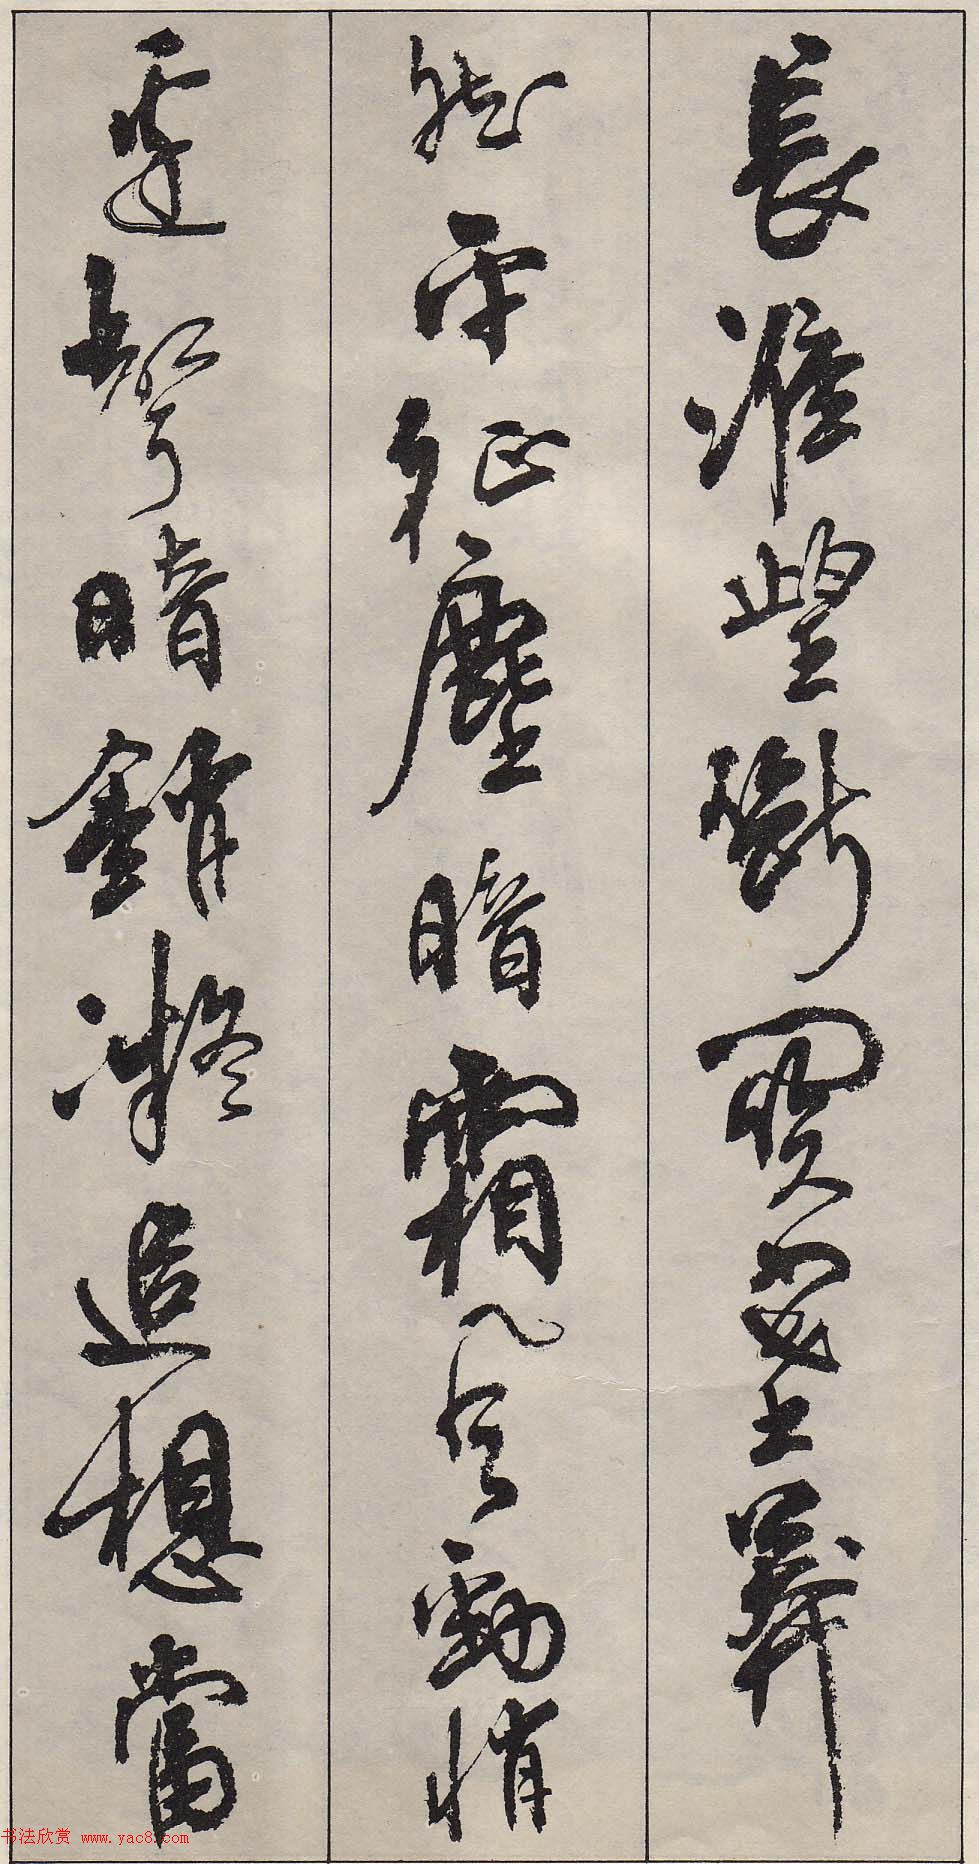 長淮望斷關塞莽
然平征塵暗霜風勁悄
邊聲暗銷凝追想當
书法欣赏 www.yac8.com